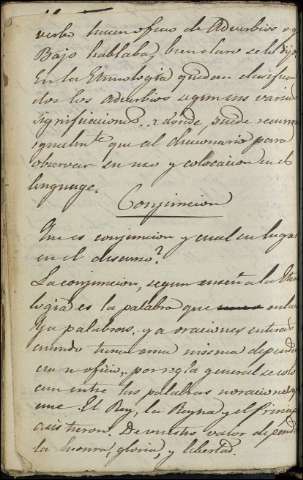 verbo hacen oficio de Adverbios v.g.
Bajo hablaba, bien claro se lo dije
En la Etimologia quedan clasifica
dos los Adverbios segun sus varias
significaciones a donde, puede recurrir
igualmente que al diccionario para
observar su uso y colocacion en el
lenguage.
Conjuncion
Que es conjuncion y cual su lugar
en el discurso?
La conjuncion, segun enseña la Etimo
logia es la palabra que enlaza
ya palabras, ya oraciones entre si
cuando tienen una misma dependen
cia u oficio, por regla general se colo
can entre las palabras u oraciones que
une El Rey, la Reyna y el Principe
asistieron. De nuestro valor depende
la honra, gloria y libertad.